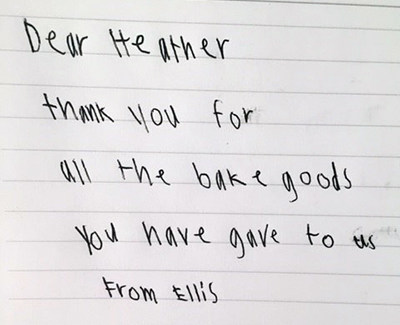 Dear Heather
thank you for
all the bake goods
you have gave to us
From Ellis